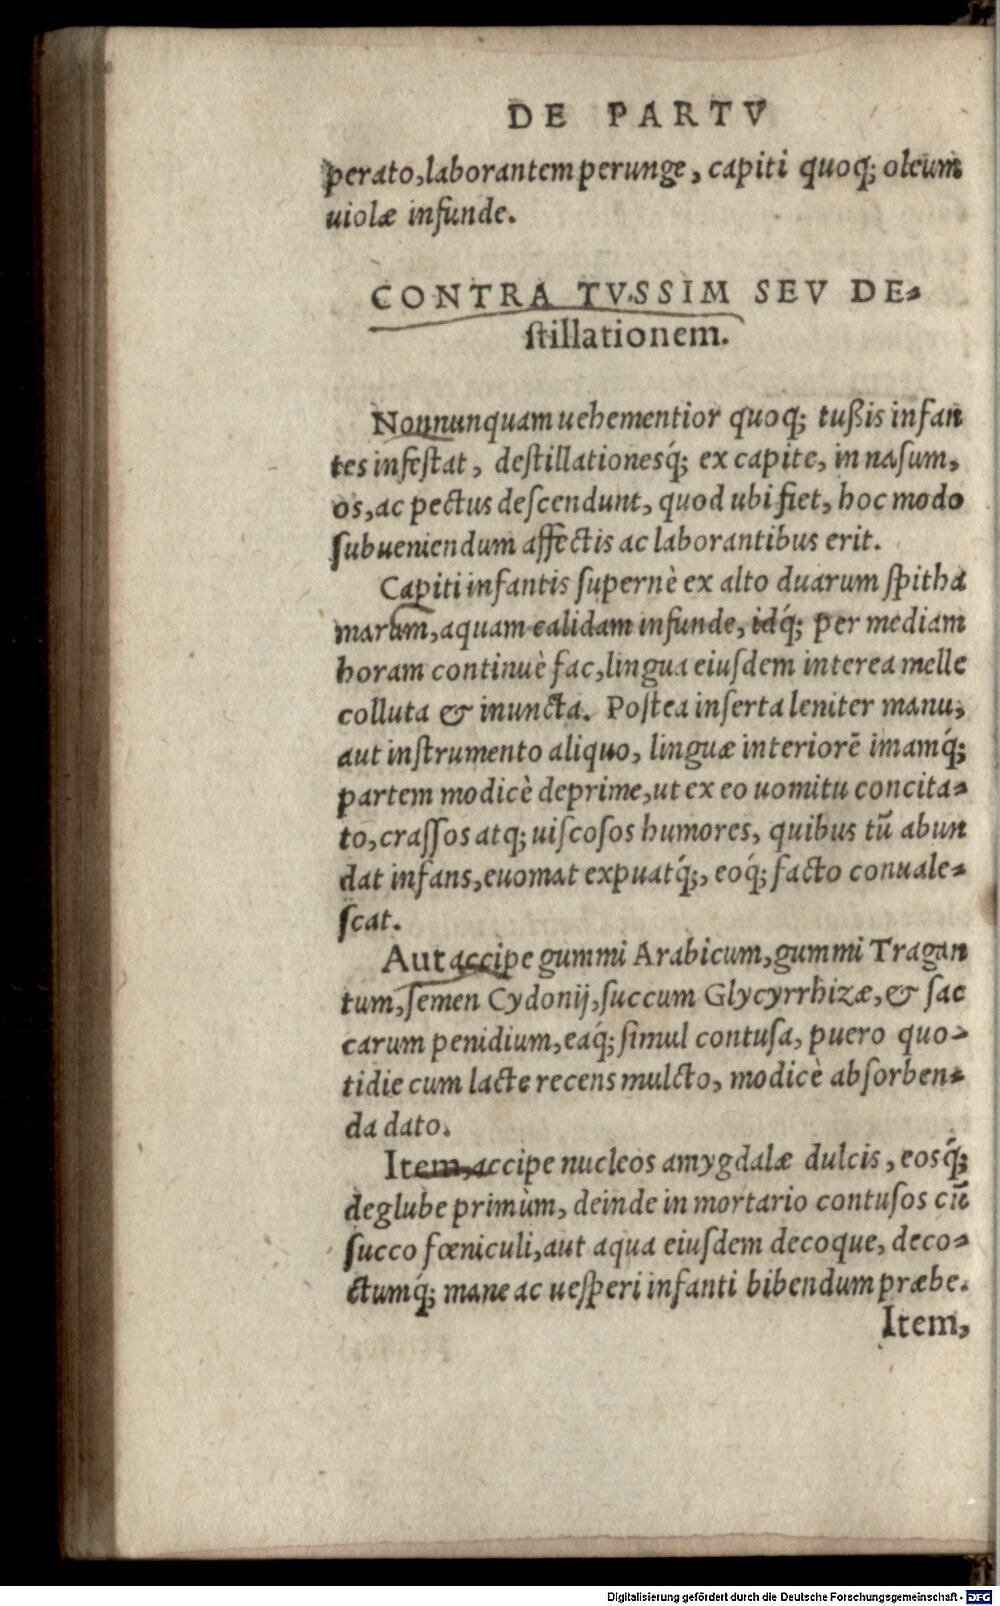 DE PARTV
perato, laborantem perunge, capiti quoq; oleum
uiolæ infunde.
CONTRA TVSSIM SEV DE-
ſtillationem.
Nonnunquam uehementior quoq; tußis infan
tes infeſtat, deſtillationesq́; ex capite, in naſum,
os, ac pectus deſcendunt, quod ubi fiet, hoc modo
ſubueniendum affectis ac laborantibus erit.
Capiti infantis ſupernè ex alto duarum ſpitha
marum, aquam calidam infunde, idq́; per mediam
horam continuè fac, lingua eiuſdem interea melle
colluta & inuncta. Poſtea inſerta leniter manu,
aut inſtrumento aliquo, linguæ interiorē imamq́;
partem modicè deprime, ut ex eo uomitu concita-
to, craſſos atq; uiſcoſos humores, quibus tū abun
dat infans, euomat expuatq́;, eoq́; facto conuale-
ſcat.
Aut accipe gummi Arabicum, gummi Tragan
tum, ſemen Cydonij, ſuccum Glycyrrhizæ, & ſac
carum penidium, eaq́; ſimul contuſa, puero quo-
tidie cum lacte recens mulcto, modicè abſorben-
da dato.
Item, accipe nucleos amygdalæ dulcis, eosq́;
deglube primùm, deinde in mortario contuſos cū
ſucco fœniculi, aut aqua eiuſdem decoque, deco-
ctumq́; mane ac ueſperi infanti bibendum præbe.
Item,
Digitalisierung gefördert durch die Deutsche Forschungsgemeinschaft - DFG